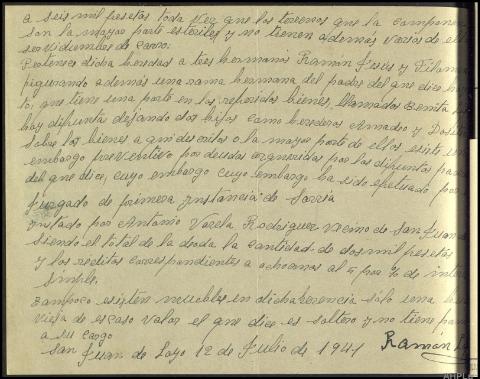 a seis mil pesetas toda vez que los terrenos que la componen
son la mayor parte esteriles y no tienen además varios de ell
servidumbres de carro.
Pertenece dicha herencia a tres hermanos Ramón Jesús y Filom
figurando además una rama hermana del padre del que dice
to, que tiene una parte en los referidos bienes, llamada Benita
hoy difunta dejando dos hijos como herederos Amadeo y
Sobre los bienes a qui descritos o la mayor parte de ellos esiste un
embargo preventivo por deudas por los difuntos padres
del que dice, cuyo embargo cuyo embargo ha sido efetuado por
Jurgado de primera instancia de Sarria
instado por Antonio Varela Rodriguez vecino de San Juan de
siendo el total de la deuda la cantidad de dos mil pesetas
y los reditos correspondientes a años al 5 por % de inte
simple.
Tampoco esisten muebles en dicha herencia solo una
vieja de escaso valor el que dice es soltero y no tiene
a su cargo
San Juan de Lozo 12 de Julio de 1941 Ramon
AHPL